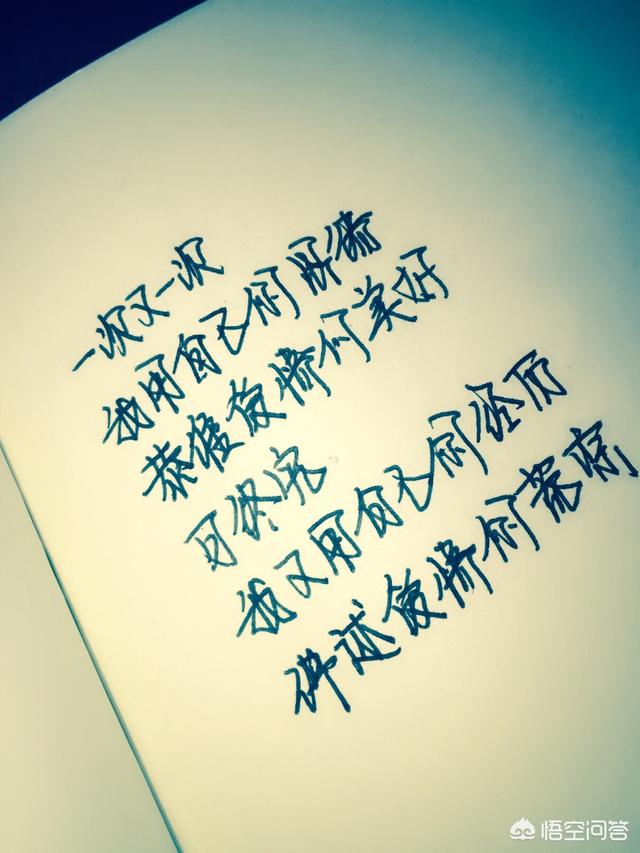 一次又一次
我用自己的
爱情的美好
可终究
我又用自己的经历
讲述爱情的荒凉
悟空问答